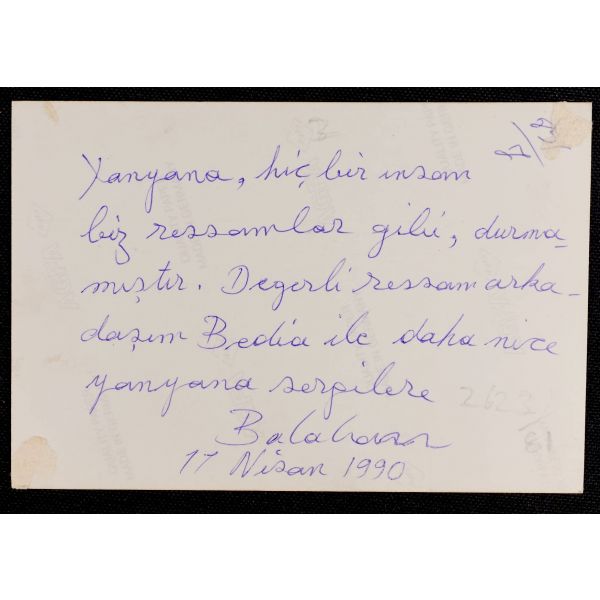 Yanyana, hiç bir insan
biz ressamlar gibi, durma-
mıştır. Değerli ressam arka-
daşım Bedia ile daha nice
yanyana sergilere
Balaban
17 Nisan 1990
2623/
81